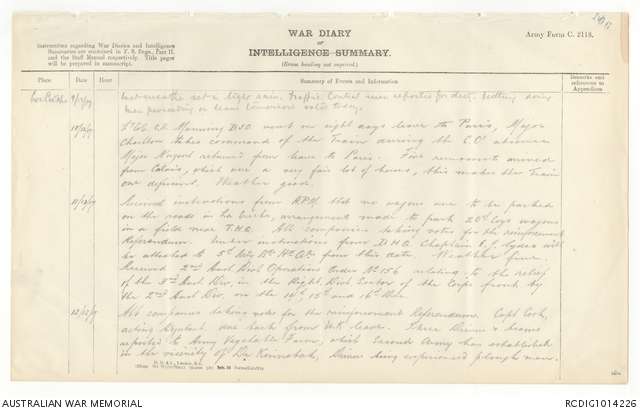 WAR DIARY
or
INTELLIGENCE SUMMARY.
(Erase heading not required.)
Army Form C. 2118.
Instructions regarding War Diaries and Intelligence
Summaries are contained in F. S. Regs., Part II.
and the Staff Manual respectively. Title pages
will be prepared in manuscript.
Place
Date
Hour
Summary of Events and Information
Remarks and
references to
Appendices
9/12/17
rain. Traffic Control men reported for duty.
men proceeding on leave tomorrow voted today.
10/12/17
Lt Col. Manning D.S.O. went on eight days leave to Paris, Major
Charlton takes command of the Train during the C.O's absence
Major Nugent returned from leave to Paris. Five remounts arrived
from Calais, which are a very fair lot of horses, this makes the Train
one deficient. Weather good.
11/12/17
Received instructions from A.P.M. that no wagons are to be parked
on the roads in La Creche, arrangement made to park 20th Coys wagons
in a field near T.H.Q. All companies taking votes for the reinforcement
Referendum. Under instructions from D.H.Q. Chaplain
be attached to 5th from this date. Weather fine.
Received 2nd Aust. Div. Operations Order No 156 relating to the relief
of the 3rd Aust Div. in the Right Div. Sector of the Corps front by
the 2nd Aust Div. on the 14th, 15th and 16th Dec.
12/12/17
All companies taking votes for the reinforcement Referendum. Capt Cork,
acting Adjutant due back from U.K. leave. Three Drivers & teams
reported to Army Vegetable Farm, which Second Army has established
in the vicinity of De Kennebak, Drivers being experienced plough men.
AUSTRALIAN WAR MEMORIAL
RCDIG1014226